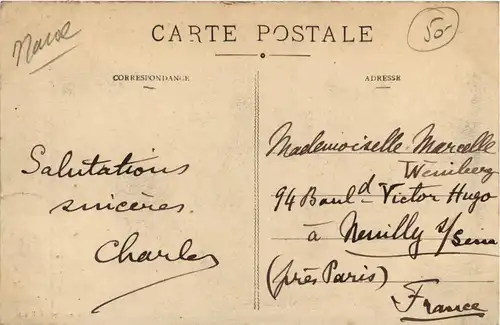 Maroc
50-
CARTE POSTALE
CORRESPONDANCE
ADRESSE
Salutations
sincères.
Charles
Mademoiselle Marcelle
Weinberg
94 Boul^d Victor Hugo
à Neuilly s/Seine
(près Paris)
France